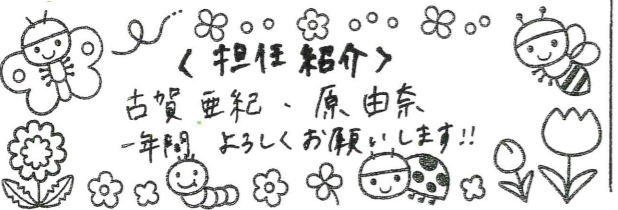 〈担任紹介〉
古賀亜紀、原由奈
一年間 よろしくお願いします!!